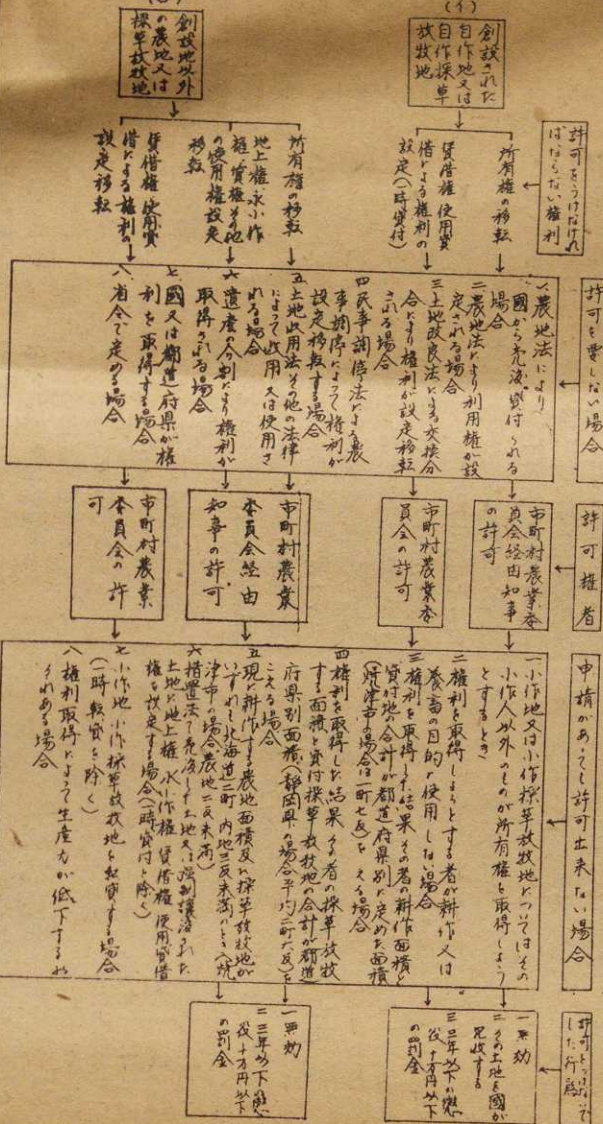 許可をうけなければならない権利
許可を要しない場合
許可権者
申請があっても許可出来ない場合
許可をうけないでした行為
(イ)
創設された
自作地又は
自作採草
放牧地
所有権の移転
賃借権 使用貸
借による権利の
設定(一時貸付)
創設地以外
の農地又は
採草放牧地
所有権の移転
地上権、永小作
権、質権その他
の使用権設定
移転
賃借権 使用貸
借による権利の
設定移転
一、農地法により
国から売渡、貸付られる
場合
二 農地法により利用権が設
定される場合
三 土地改良法による交換分
合により権利が設定移転
される場合
四 民事調停法による農
事調停によって権利が
設定移転する場合
五 土地収用法その他の法律
によって収用又は使用さ
れる場合
六 遺産の分割により権利が
取得される場合
七 國又は都道府県が権
利を取得する場合
八 省令で定める場合
市町村農業委
員会経由知事
の許可
市町村農業委
員会の許可
市町村農業
委員会経由
知事の許可
市町村農業
委員会の許
可
一 小作地又は小作採草放牧地についてはその
小作人以外のものが所有権を取得しよう
とするとき
二 権利を取得しようとする者が耕作又は
養畜の目的に使用しない場合
三 権利を取得した結果その者の耕作面積と
貸付地の合計が都道府県別に定めた面積
(焼津市の場合は二町七反)をこえる場合
四 権利を取得した結果その者の採草放牧
する面積と貸付採草放牧地の合計が都道
府県別面積(静岡県の場合平均二町六反)を
こえる場合
五 現に耕作する農地面積及び採草放牧地が
いずれも北海道二町 内地三反未満である(焼
津市の場合農地二反未満)
六 措置法で売渡した土地又は強制譲渡された
土地に地上権 永小作権 賃借権 使用貸借
権を設定する場合(一時貸付を除く)
七 小作地 小作採草放牧地を転貸する場合
(一時転貸を除く)
八 権利取得によって生産力が低下するお
それある場合
一 無効
二 その土地を國が
買收する
三 三年以下の懲
役十万円以下
の罰金
一 無効
二 三年以下の懲
役十万円以下
の罰金